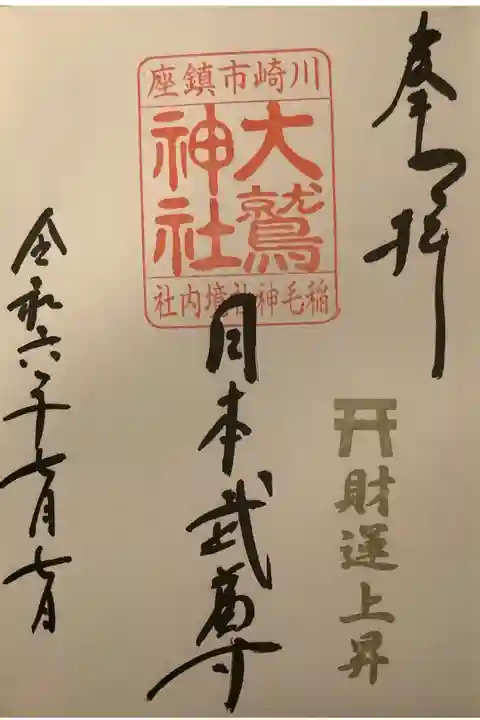 奉拝
川崎市鎮座
大鷲
神社
稲毛神社境内社
⛩財運上昇
日本武尊
令和六年七月七日